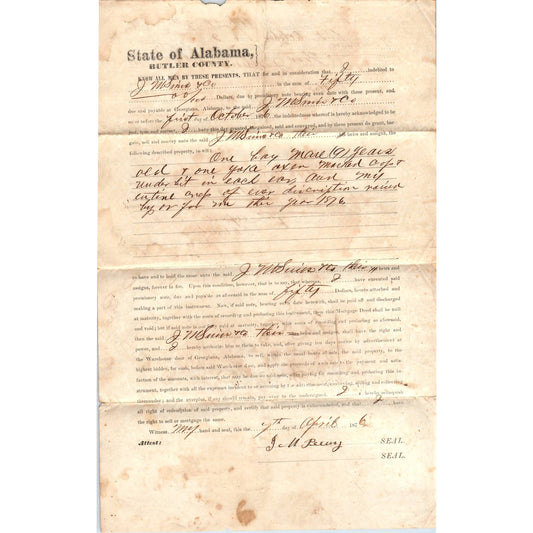 State of Alabama,
BUTLER COUNTY.
KNOW ALL MEN BY THESE PRESENTS, THAT for and in consideration that I indebted to
in the sum of Fifty
00/100 Dollars, due by promissory note bearing even date with these present, and
due and payable at Georgiana, Alabama, to the said
before the first October the indebtedness whereof is hereby acknowledged to be
just, true and correct, I have this day
gain, sell and convey unto the said heirs and assigns, the
following described property, to wit:
One bay mare (9) years
old & one yoke oxen marked crop &
underbit in each ear and my
entire crop of ever discription raised
by or for me this year 1876
to have and to hold the same unto the said heirs and
assigns, forever in fee. Upon this condition, however, that is to say, that whereas I have executed said
promissory note, due and payable as aforesaid in the sum of fifty Dollars, hereto attached and
making a part of this instrument. Now, if said note, bearing even date herewith, shall be paid off and discharged
at maturity, together with the costs of recording and probating this instrument, then this Mortgage Deed shall be null
and void; but if said note is not paid at maturity, together with costs of recording and probating as aforesaid,
then the said heirs and assigns, shall have the right and
power, and I hereby authorize them to take, and, after giving ten days notice by advertisement at
the Warehouse door of Georgiana, Alabama, to sell, within the usual hours of sale, the said property, to the
highest bidder, for cash, before said Warehouse door, and apply the proceeds of such sale to the payment and satis-
faction of the amount, with interest, that may be due on said note, after paying for recording and probating this in-
strument, together with all the expenses incurred in or arising by the advertisement,
thereunder; and the overplus, if any should remain, pay over to the undersigned. I hereby relinquish
all right of redemption of said property, and certify that said property is unincumbered, and that I have
the right to sell or mortgage the same.
Witness my hand and seal, this the 7th day of April 1876
Attest: J M SEAL.
SEAL.